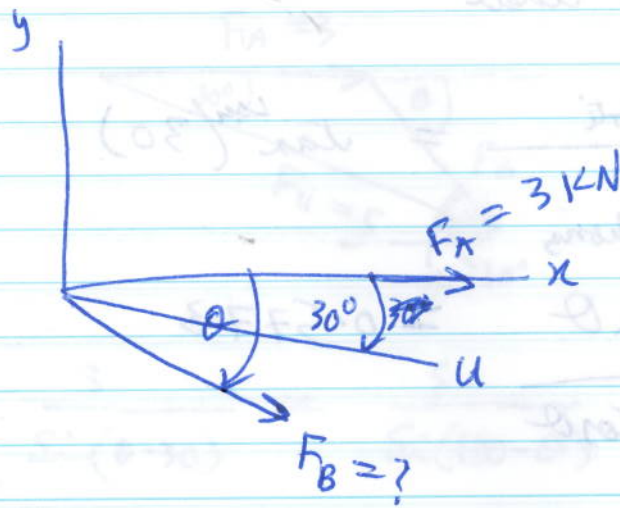 y
F_A = 3 KN
x
θ 30°
u
F_B = ?